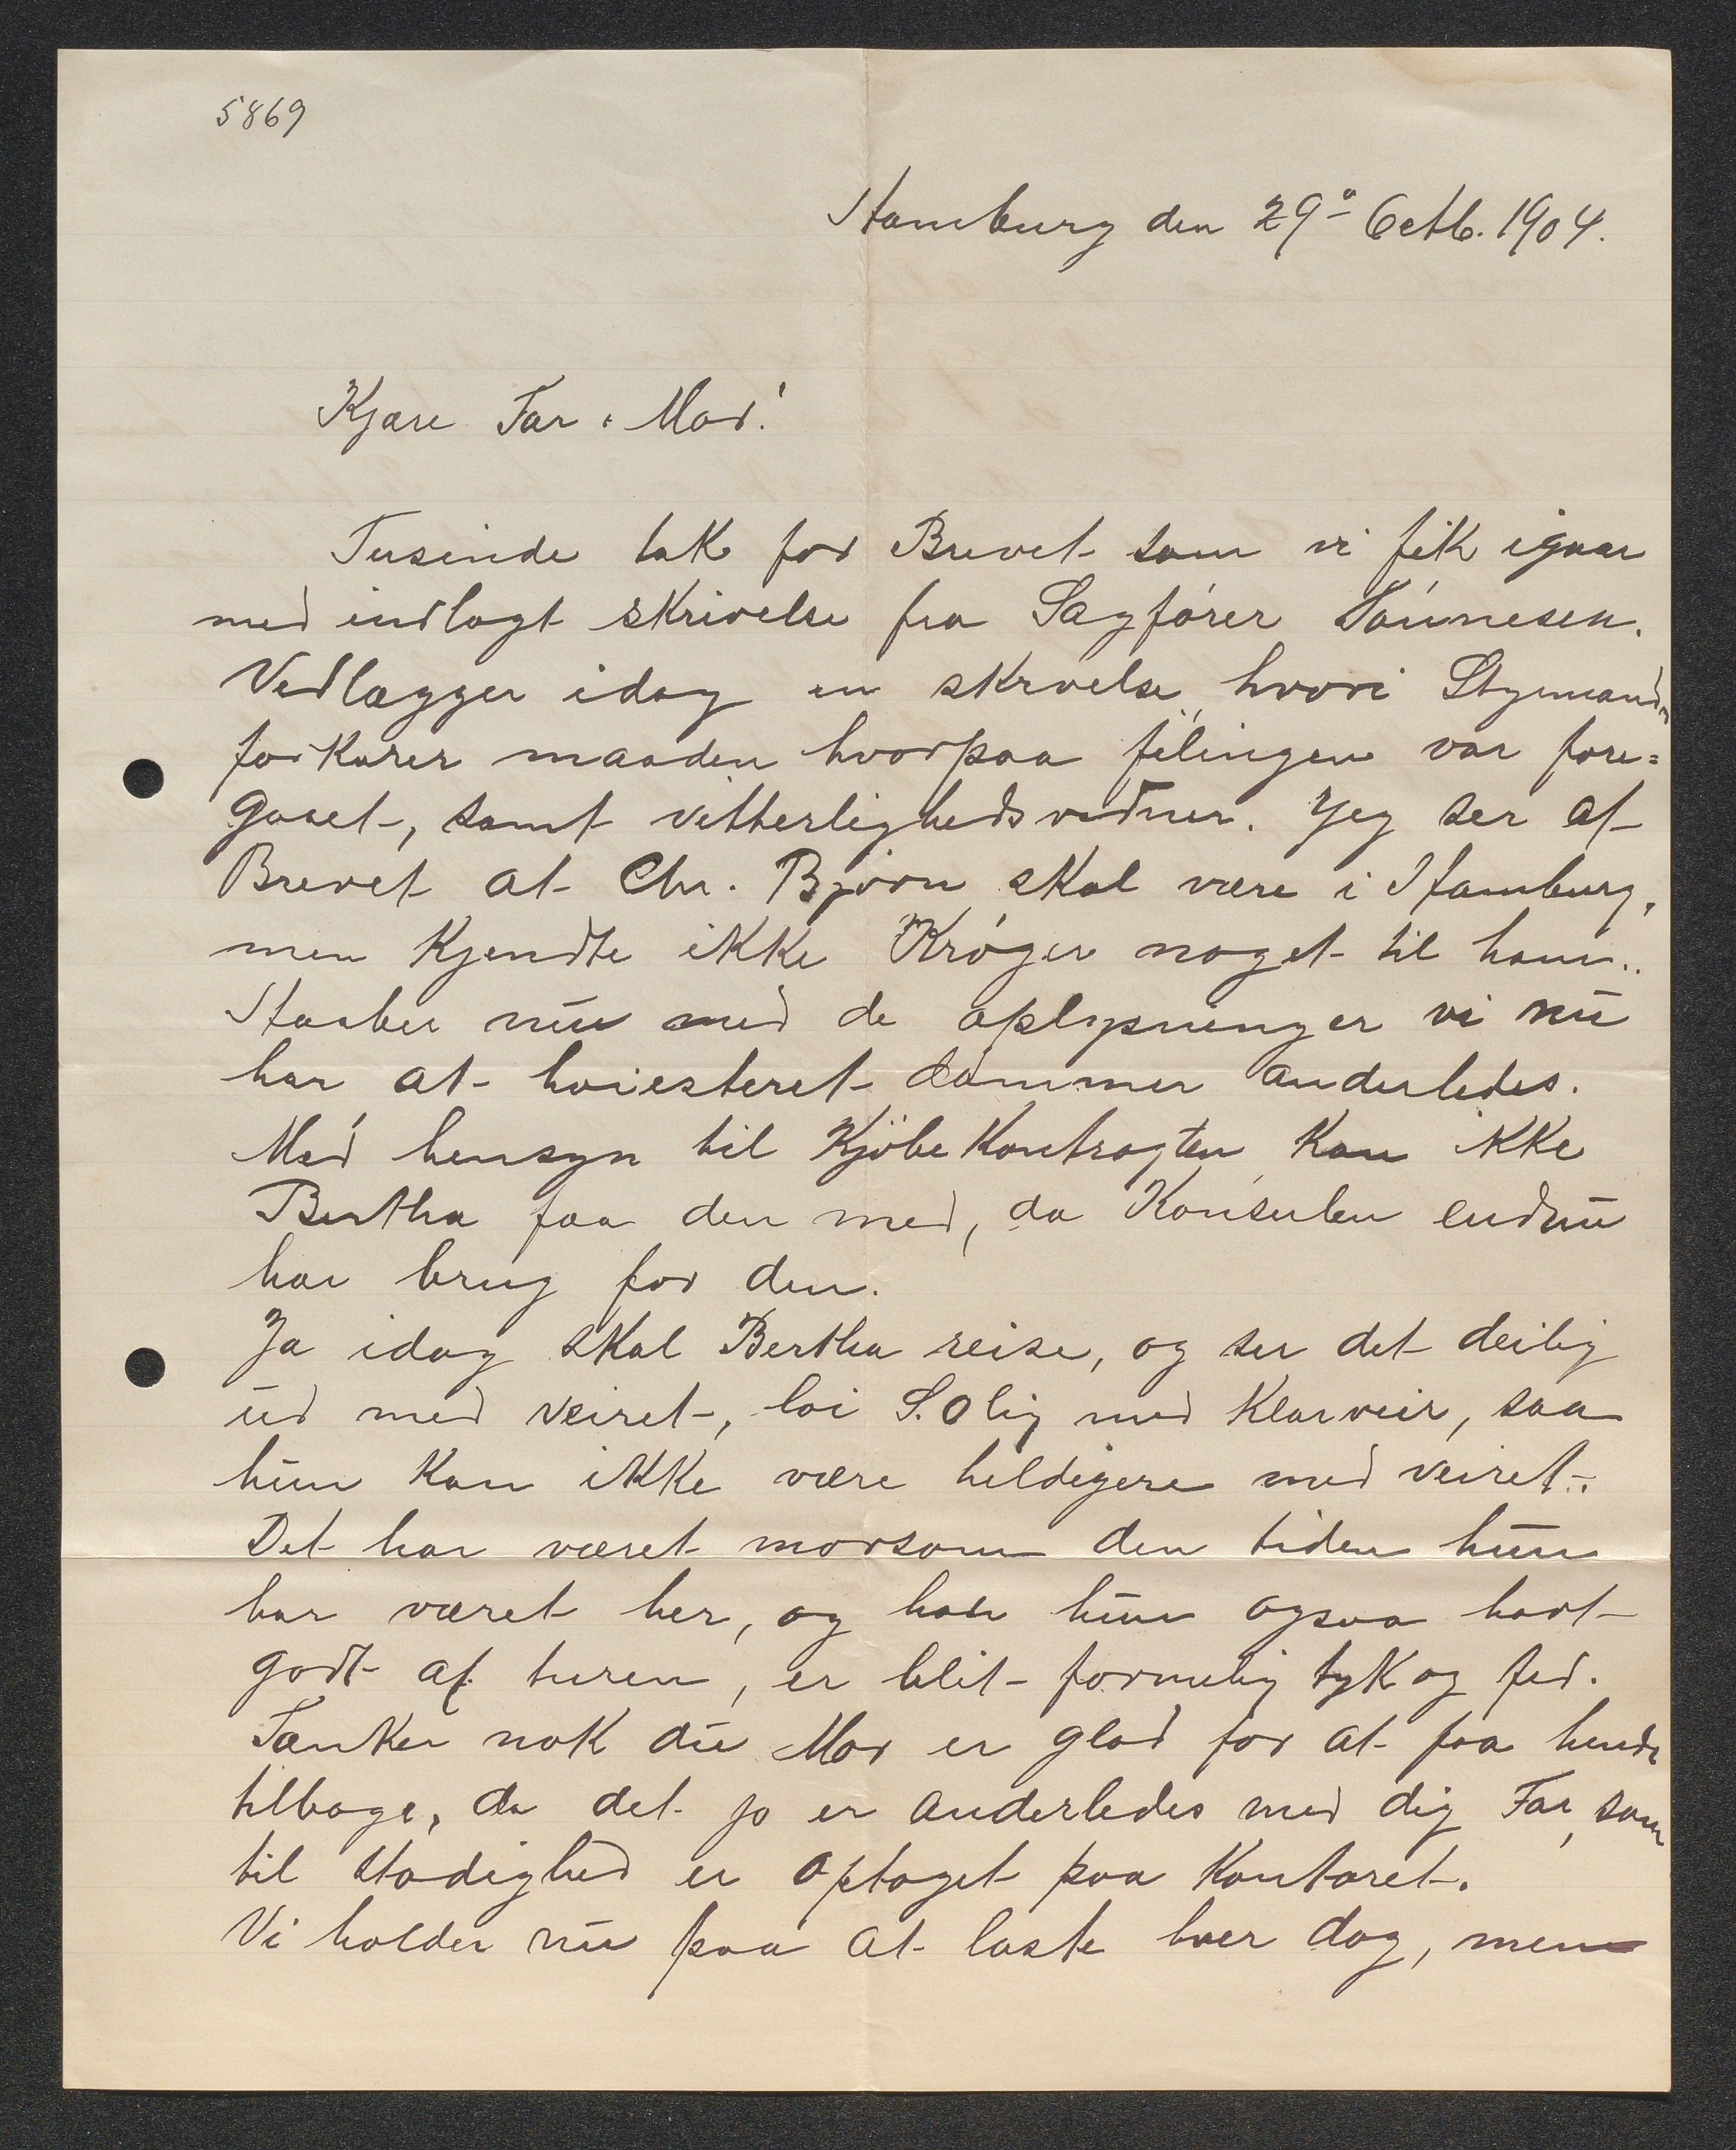 5869
Hamburg den 29de Octb. 1904.
Kjære Far & Mor!
Tusinde tak for Brevet som vi fik igaar
med indlagt skrivelse fra Sagfører Tønnesen.
Vedlægger idag en skrivelse hvori Styrmanden
forklarer maaden hvorpaa filingen var fore=
gaaet, samt vitterlighedsvidner. Jeg ser af
Brevet at Chr. Bjørn skal være i Hamburg,
men kjendte ikke Krøger noget til ham.
Haaber nu med de oplysninger vi nu
har at høiesteret dømmer anderledes.
Med hensyn til Kjøbekontragten kan ikke
Bertha faa den med, da Konsulen endnu
har brug for den.
Ja idag skal Bertha reise, og ser det deilig
ud med veiret, löi S.Olig med klarveir, saa
hun kan ikke være heldigere med veiret.
Det har været morsom den tiden hun
har været her, og har hun ogsaa havt
godt af turen, er blit formelig tyk og fed.
Tænker nok du Mor er glad for at faa hende
tilbage, da det jo er anderledes med dig Far, som
til stadighed er optaget paa Kontoret.
Vi holder nu paa at laste hver dag, men